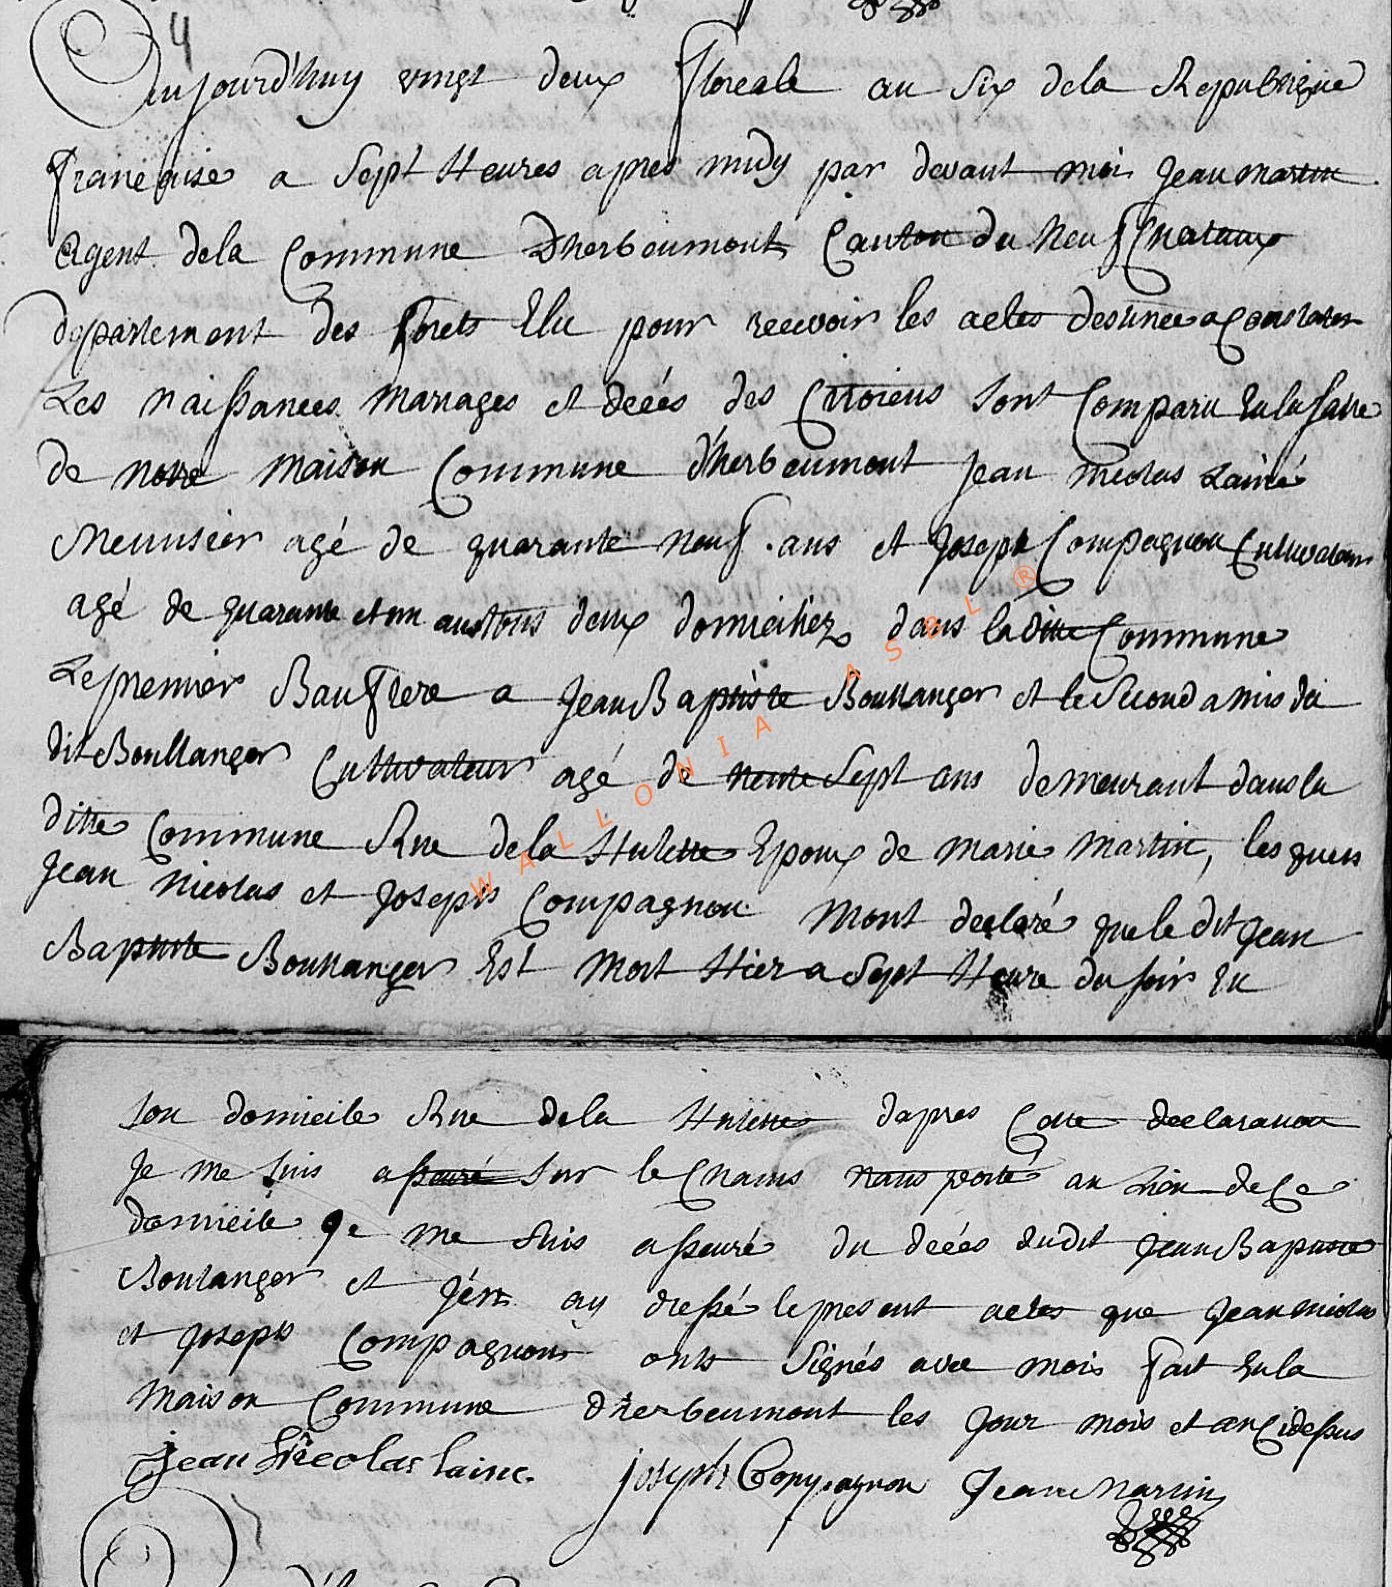 4
Aujourd'huy vingt deux floreale an six dela Republique
francoise a sept heures apres midy par devant moi Jean martin
Agent dela Commune Dherbeumont Canton du Neufchataux
departement des forets Elu pour recevoir les actes destinee a Constater
Les naissances mariages et décés des Citoiens sont Comparu en la salle
de notre maison Commune d'herbeumont Jean nicolas Lainé
Meunsier agé de quarante neuf ans et joseph Compagnon Cultivateur
agé de quarante et un ans tous deux domicihez dans la ditte Commune
Le premier Baufrere a Jean Baptiste Boullanger et le second amis du
dit Boullanger Cultivateur agé de trente sept ans demeurant dans la
ditte Commune Rue dela Hulette Epoux de marie martin, les quels
Jean nicolas et joseph Compagnon mont declaré que le dit Jean
Baptiste Boullanger Est mort Hier a sept Heure du soir En
son domicile Rue dela Hulette dapres Cette declaration
Je me suis assuré sur le Chams transporté au Lieu de Ce
domicile Je me suis asseuré du décés dudit Jean Baptiste
Boulanger et J'en ay dressé le present actes que Jean nicolas
et joseph Compagnon onts signés avec mois fait En la
maison Commune d'herbeumont les jour mois et an Cidessus
Jean Nicolas laine. joseph Compagnon Jean Martin
WALLONIA ASBL ®